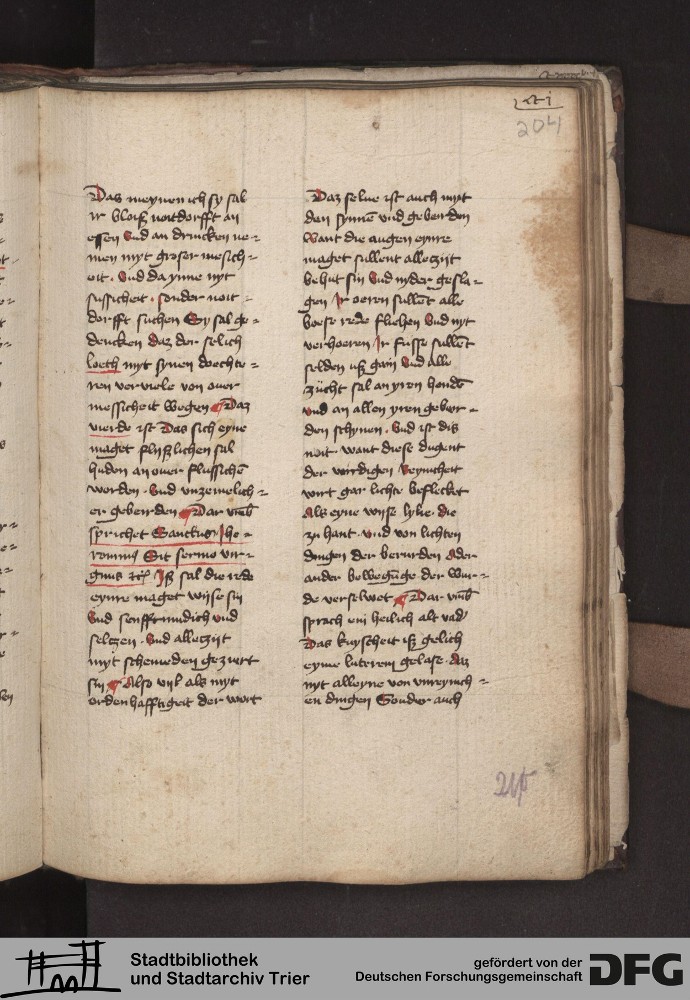 204
Das meynen ich sy sal
ir bloiß noitdorfft an
essen Vnd an drincken ne=
men myt groser mesich=
eit. Vnd da ynne nyt
sussicheit. sonder noit=
dorfft suchen Sy sal ge=
dencken daz der selich
loeth myt synen doechte=
ren verviele von over
messicheit wegen Daz
vierde ist Das sich eyne
maget flyßlichen sal
huden an over flussichen
worden. Vnd vnzemelich=
er geberden Dar vmb
sprichet Sanctus Jhe=
ronimus Sit sermo vir=
ginis etc Iß sal die rede
eynre maget wijse sin
Vnd senfftmudich vnd
seltzen. Vnd alleczijt
myt schemeden gezyert
sin Also vyl als myt
ordenhafftigeit der wort
Daz selue ist auch myt
den synnē vnd geberden
Want die augen eynre
maget sullent alleczijt
behut sin Vnd nyder gesla=
gen Ir oeren sullēt alle
boese rede fliehen Vnd nyt
verhoeren Ir fusse sullēt
selden uß gain Vnd alle
zücht sal an yren hendē
vnd an allen yren geber=
den schynen. Vnd ist dis
noit. want diese dugent
der wirdigen Reynicheit
wirt gar lichte beflecket
Als eyne wijse lylie. die
zu hant. vnd von lichten
dingen der berurden Ader
ander bewegūge der wur=
de verselwet Dar vmb
sprach ein heilich alt vad'
Das kuyscheit iß gelich
eyme luterem gelase. daz
nyt alleyne von vnreynich=
en dingen Sonder auch
Stadtbibliothek
und Stadtarchiv Trier
gefördert von der
Deutschen Forschungsgemeinschaft
DFG